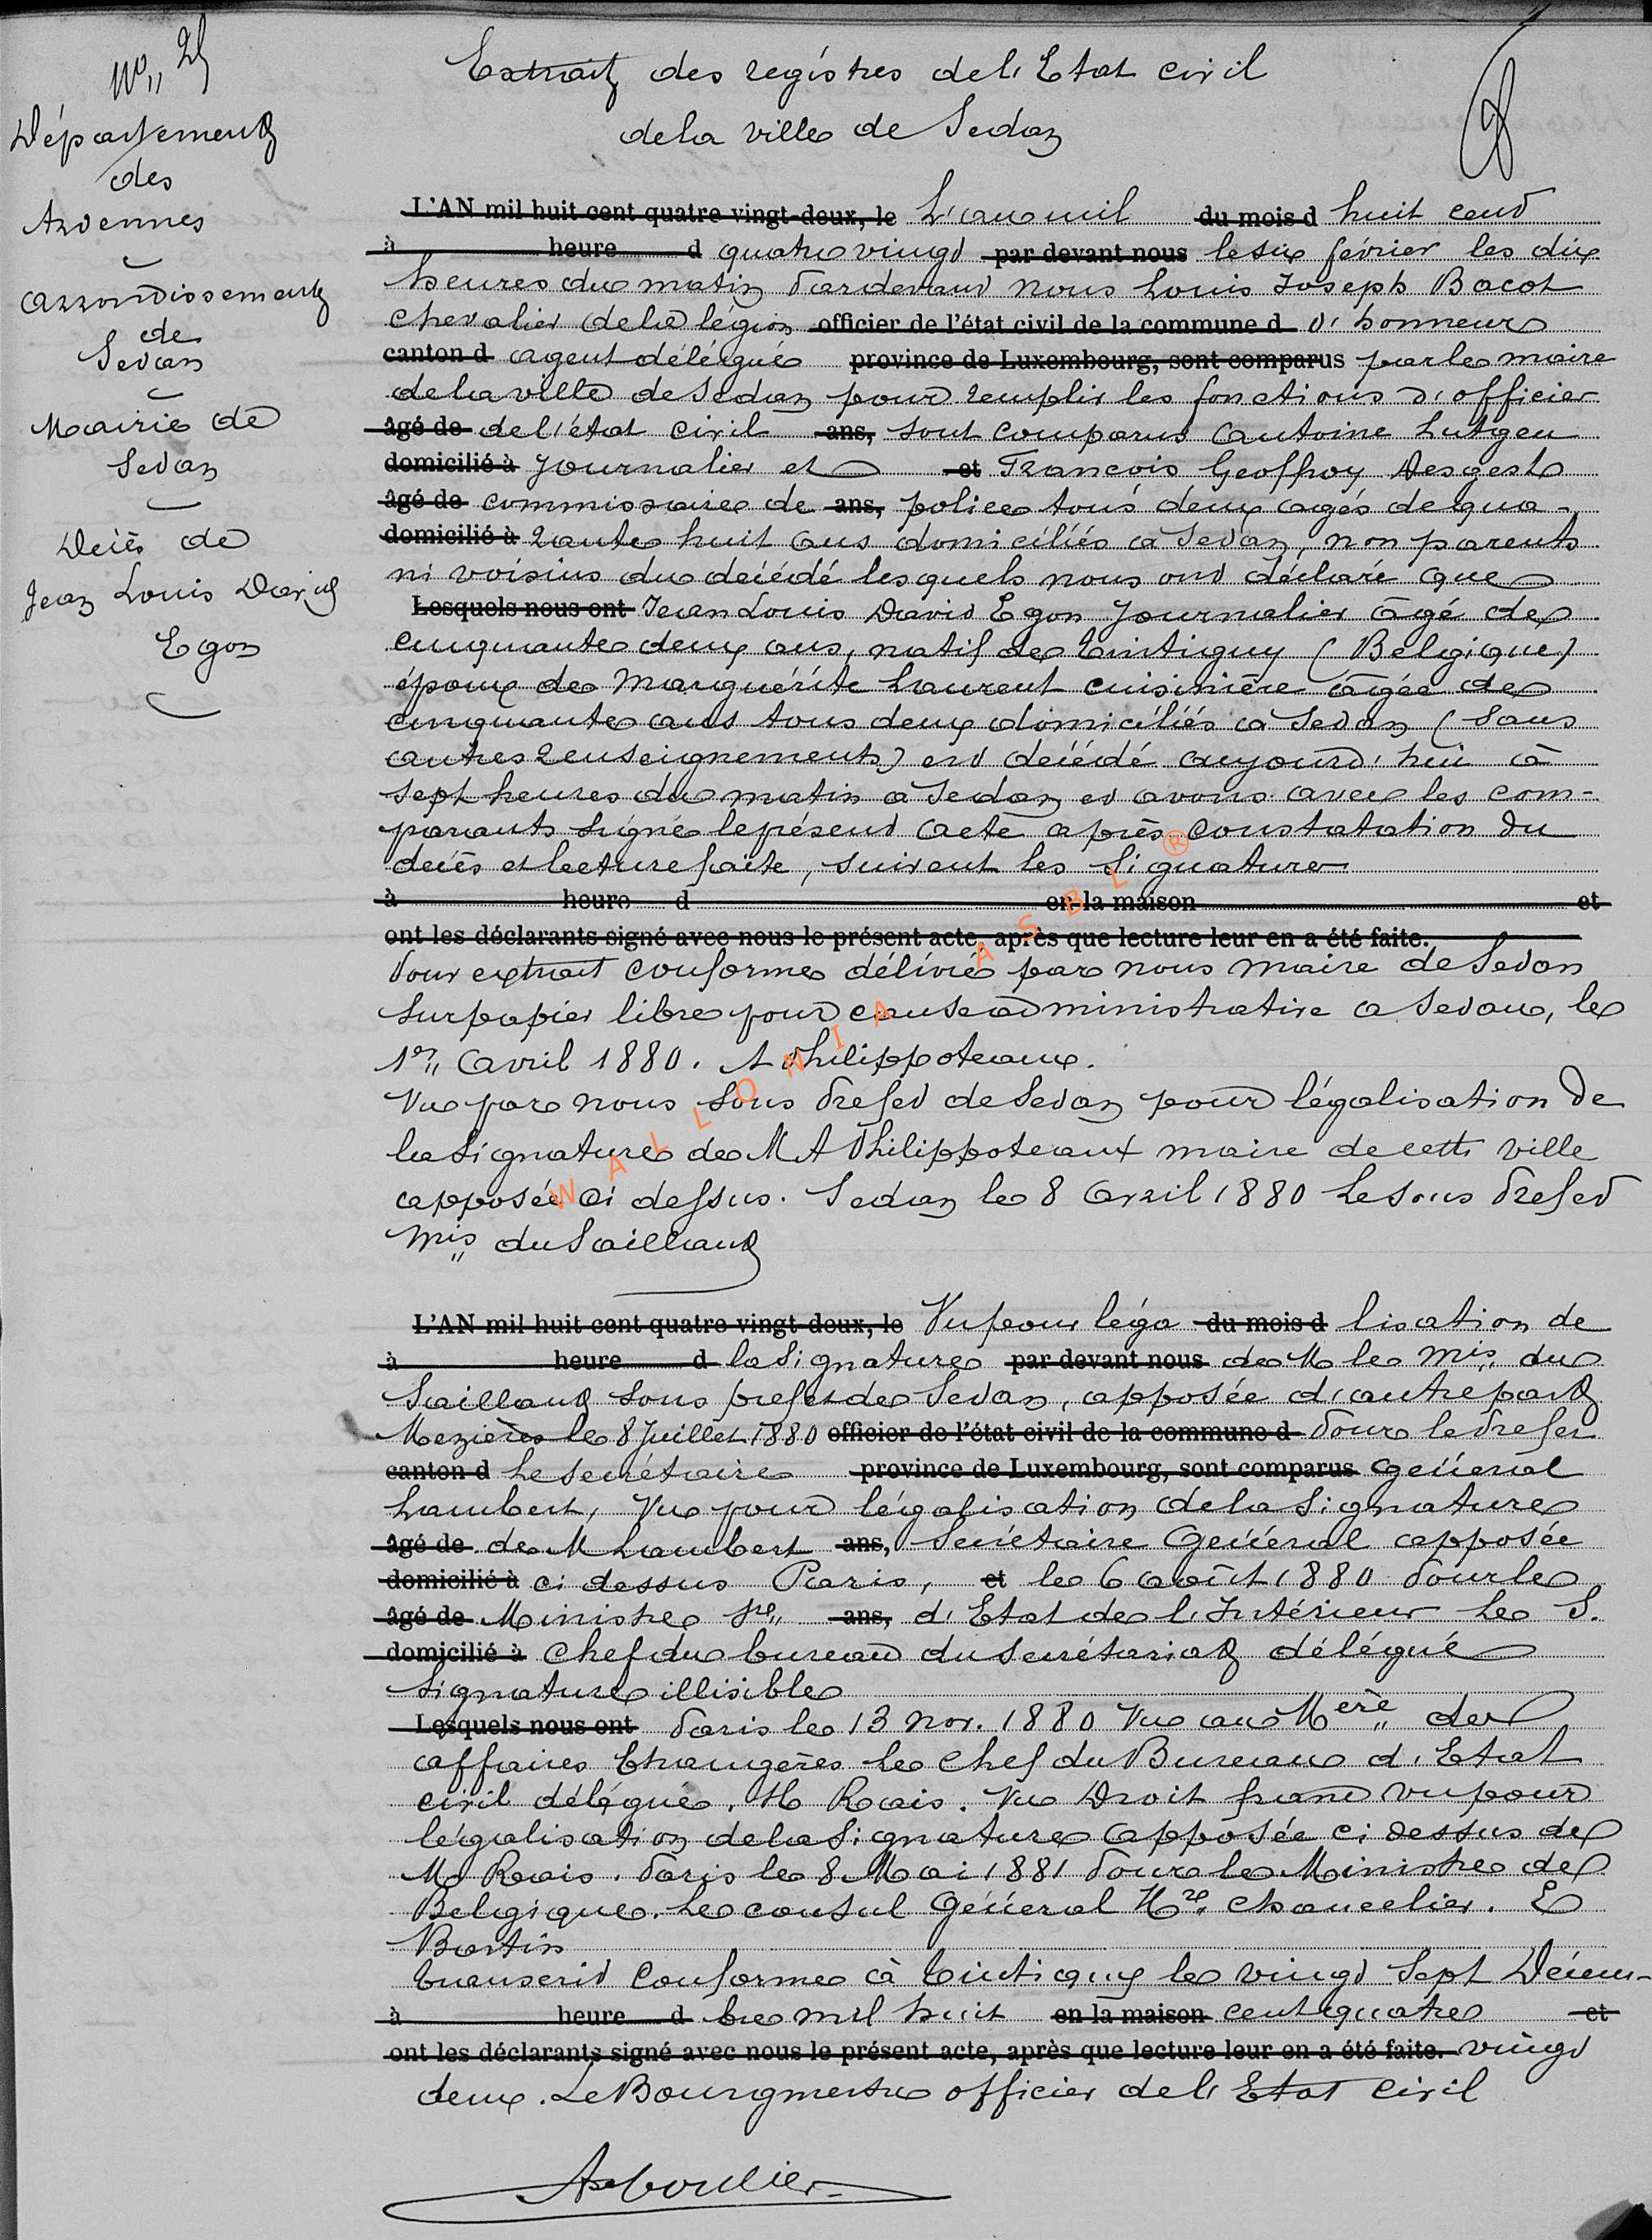 N° 25
Département
des
Ardennes
Arrondissement
de
Sedan
Mairie de
Sedan
Décès de
Jean Louis David
Egon
Extrait des registres de l'Etat civil
de la ville de Sedan
L'AN mil huit cent quatre vingt-deux, le L'an mil du mois d huit cent
à heure d quatre vingt par devant nous le six février les dix
heures du matin Pardevant nous Louis Joseph Bacot
chevalier de la légion officier de l'état civil de la commune d d'honneur
canton d agent délégué province de Luxembourg, sont comparus par le maire
de la ville de Sedan pour remplir les fonctions d'officier
âgé de de l'état civil ans, sont comparus Antoine Lutgen
domicilié à journalier et et François Geoffroy Desgest
âgé de commissaire de ans, police tous deux agés de qua-
domicilié à rante huit ans domiciliés à Sedan, non parents
ni voisins du décédé lesquels nous ont déclaré que
Lesquels nous ont Jean Louis David Egon journalier âgé de
cinquante deux ans, natif de Tintigny (Belgique)
époux de Marguérite Laurent cuisinière âgée de
cinquante ans tous deux domiciliés à Sedan (sans
autres renseignements) est décédé aujourd'hui à
sept heures du matin à Sedan et avons avec les com-
parants signé le présent acte après constatation du
décès et lecture faite, suivent les signatures
à heure d en la maison et
ont les déclarants signé avec nous le présent acte, après que lecture leur en a été faite.
Pour extrait conforme délivré par nous maire de Sedan
sur papier libre pour cause administrative a Sedan, le
1er avril 1880. A Philippoteaux.
Vu par nous Sous Prefet de Sedan pour légalisation de
la signature de M A Philippoteaux maire de cette ville
apposée ci dessus. Sedan le 8 Avril 1880 Le sous Prefet
Mis du Saillant
L'AN mil huit cent quatre vingt-deux, le Vu pour léga du mois d lisation de
à heure d la signature par devant nous de M le Mis du
Saillant sous prefet de Sedan, apposée d'autre part
Mezières le 8 Juillet 1880 officier de l'état civil de la commune d Pour le Prefet
canton d Le secrétaire province de Luxembourg, sont comparus général
Lambert, Vu pour légalisation de la signature
âgé de de M Lambert ans, Secrétaire Général apposée
domicilié à ci dessus Paris, et le 6 août 1880 Pour le
âgé de Ministre Sre ans, d'Etat de l'Intérieur Le S.
domicilié à chef du bureau du secrétariat délégué
signature illisible
Lesquels nous ont Paris le 13 nov. 1880 Vu au Mère des
affaires Etrangères Le chef du Bureau d'Etat
civil délégué. H Rais. Vu Droit franc vu pour
légalisation de la signature apposée ci dessus de
M Rais. Paris le 8 Mai 1881 Pour le Ministre de
Belgique. Le consul Général Hre chancelier. E
Bastin
Transcrit conforme à Tintigny le vingt sept Décem-
à heure d bre mil huit en la maison cent quatre et
ont les déclarants signé avec nous le présent acte, après que lecture leur en a été faite. vingt
deux. Le Bourgmestre officier de l'Etat civil
WALLONIA ASBL ®